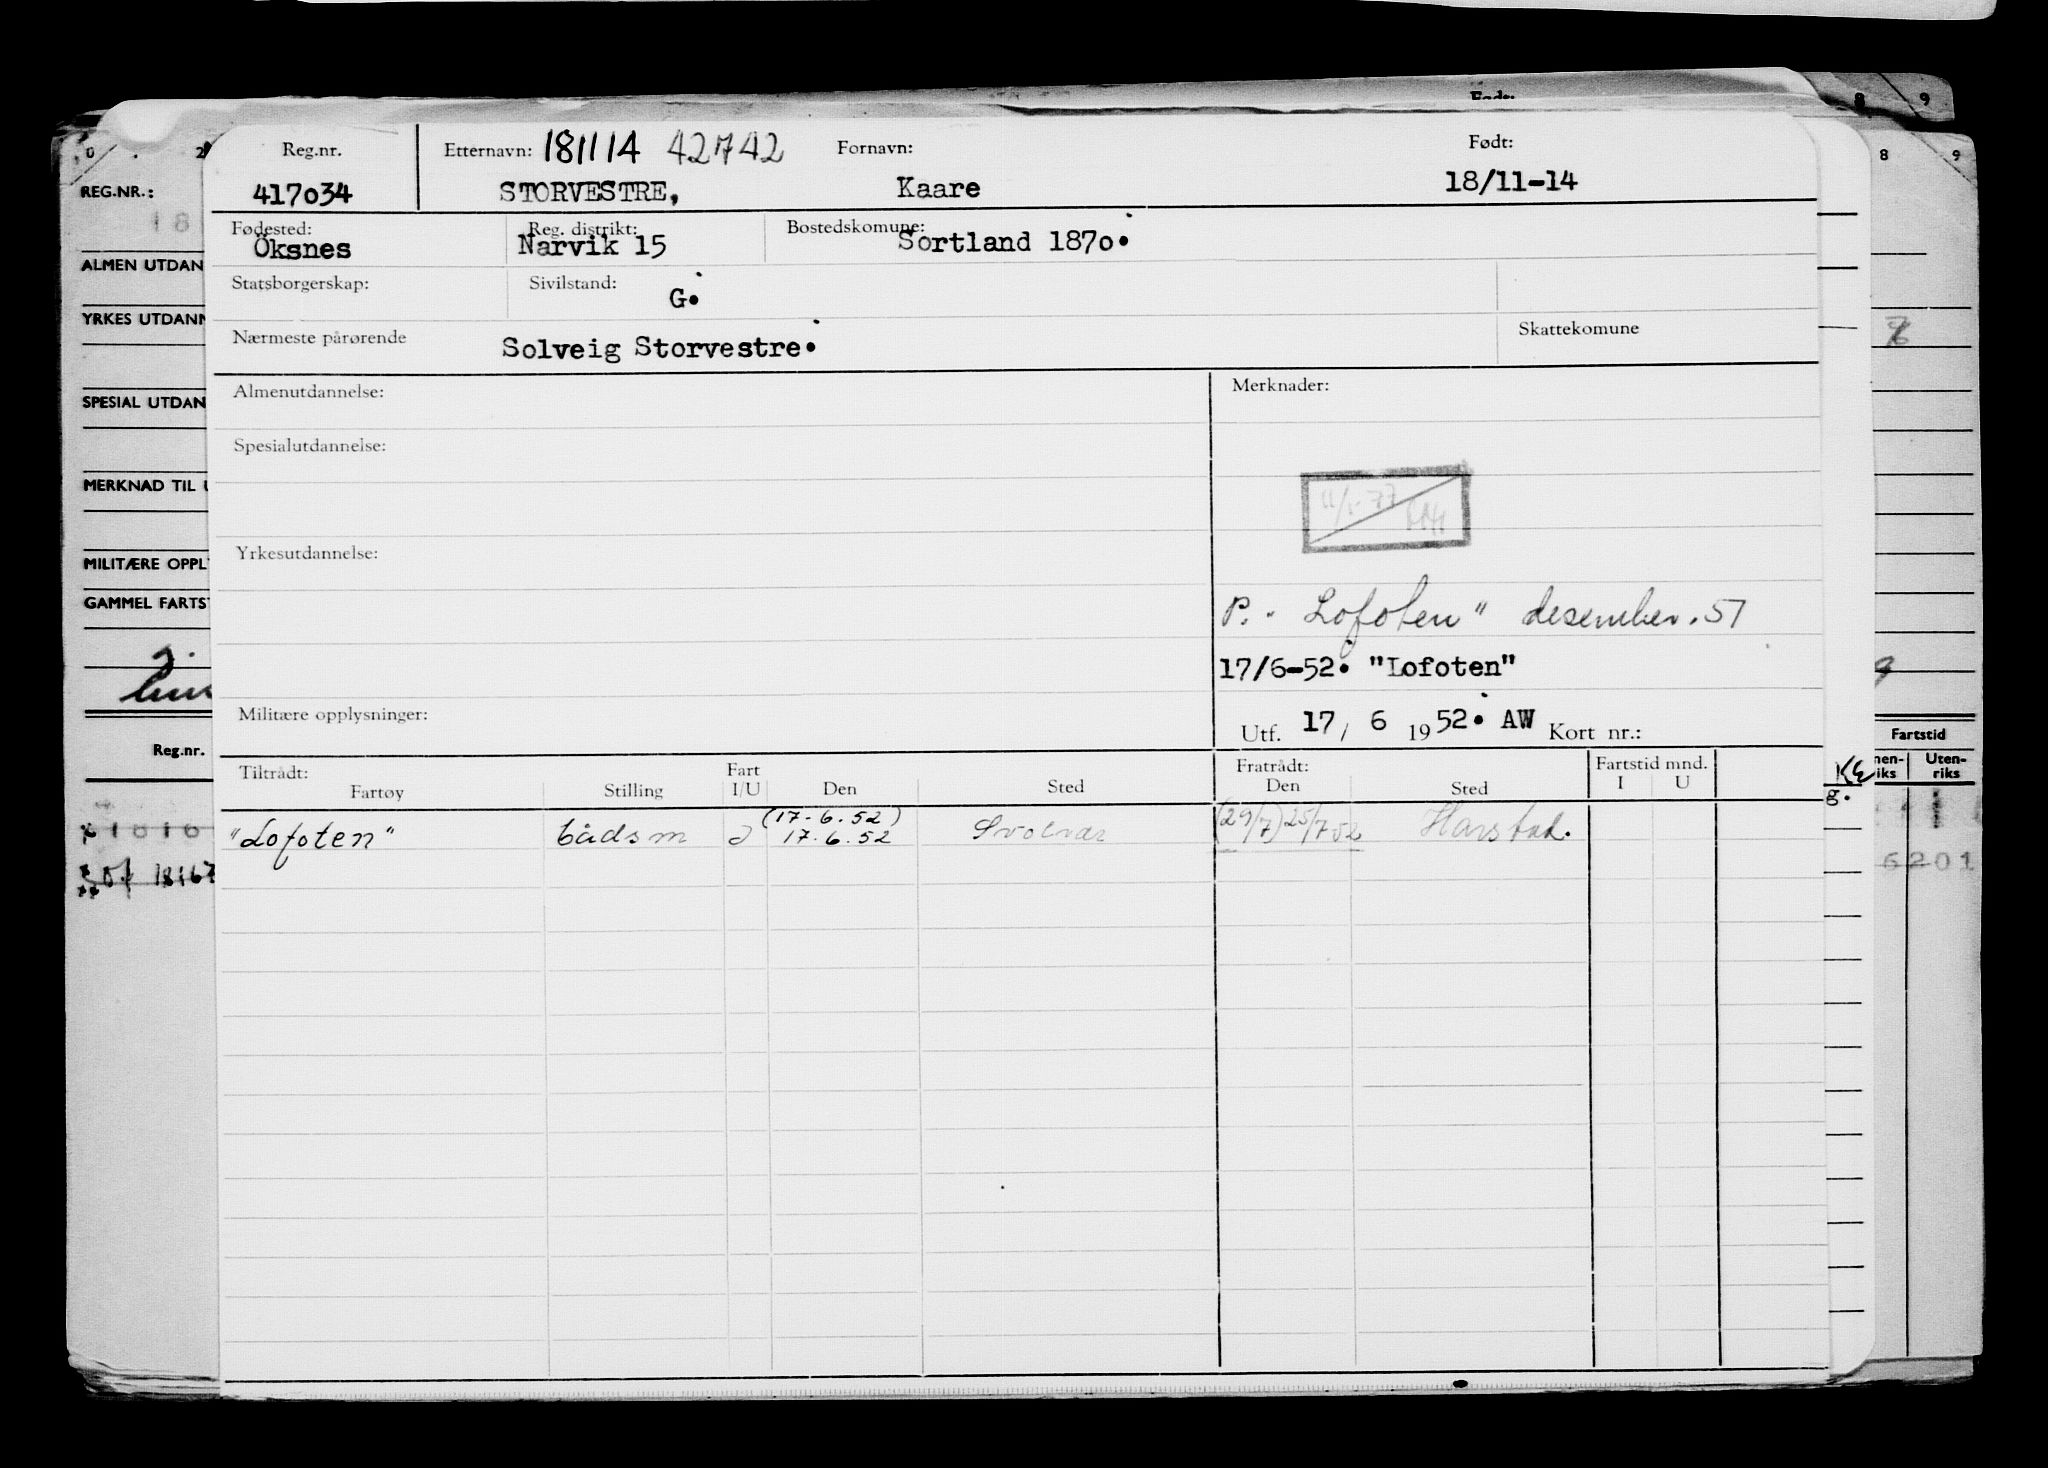 Født:
8 9
0 . 2
8 9
REG.NR.:
18
ALMEN UTDAN
YRKES UTDANN
SPESIAL UTDAN
MERKNAD TIL U
MILITÆRE OPPL
GAMMEL FARTST
Reg.nr.
Reg.nr. Etternavn: 181114 42742 Fornavn: Født:
417034 STORVESTRE, Kaare 18/11-14
Fødested: Reg. distrikt: Bostedskomune:
Öksnes Narvik 15 Sortland 1870.
Statsborgerskap: Sivilstand:
G.
Nærmeste pårørende Solveig Storvestre. Skattekomune
Almenutdannelse: Merknader:
Spesialutdannelse:
11/1-77
Yrkesutdannelse:
P. "Lofoten" desember.51
17/6-52. "Lofoten"
Militære opplysninger:
Utf. 17/ 6 1952. AW Kort nr.:
Tiltrådt: Fart Fratrådt: Fartstid mnd.
Fartøy Stilling I/U Den Sted Den Sted I U
(17-6.52)
"Lofoten" bådsm 17.6.52 Svolvær (29/7) 25/7 52 Harstad.
Fartstid
nen- Uten-
iks riks
KW
g.
6201